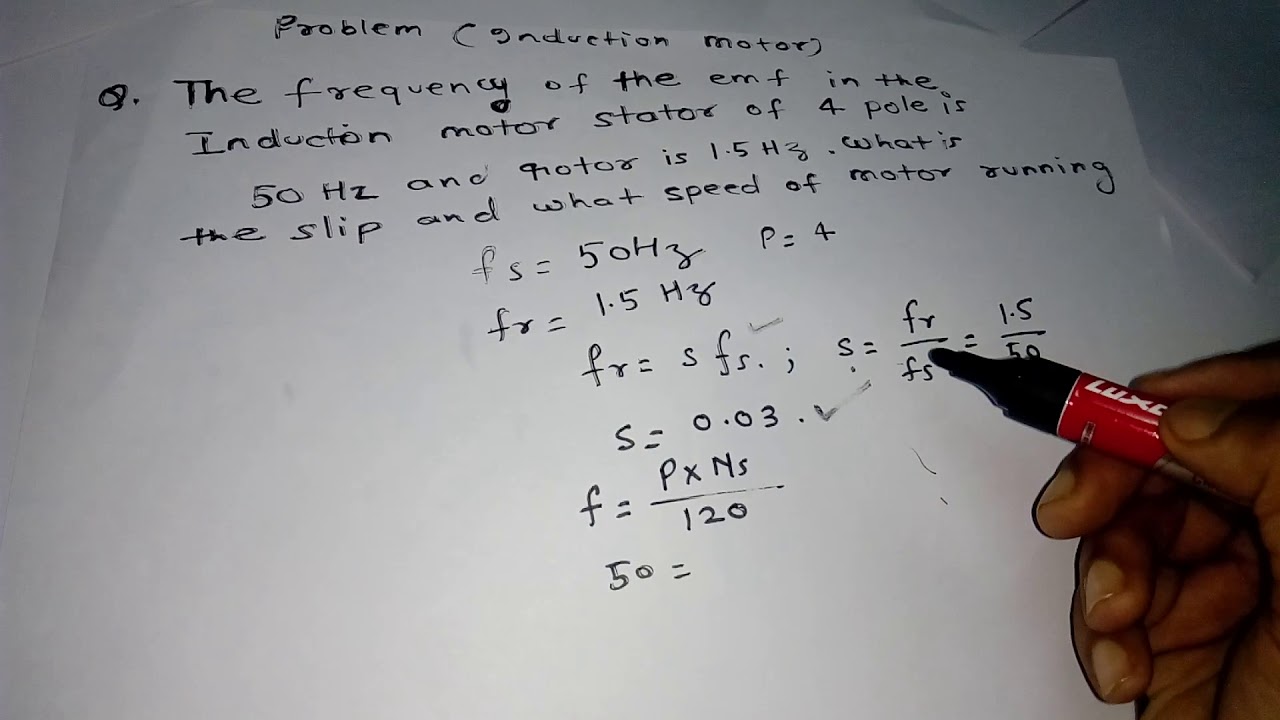 Problem (Induction motor)
Q. The frequency of the emf in the
Induction motor stator of 4 pole is
50 Hz and rotor is 1.5 Hz. what is
the slip and what speed of motor running
fs = 50Hz P = 4
fr = 1.5 Hz
fr = s fs. ; s = fr/fs = 1.5/50
s = 0.03.
f = P x Ns/120
50 =